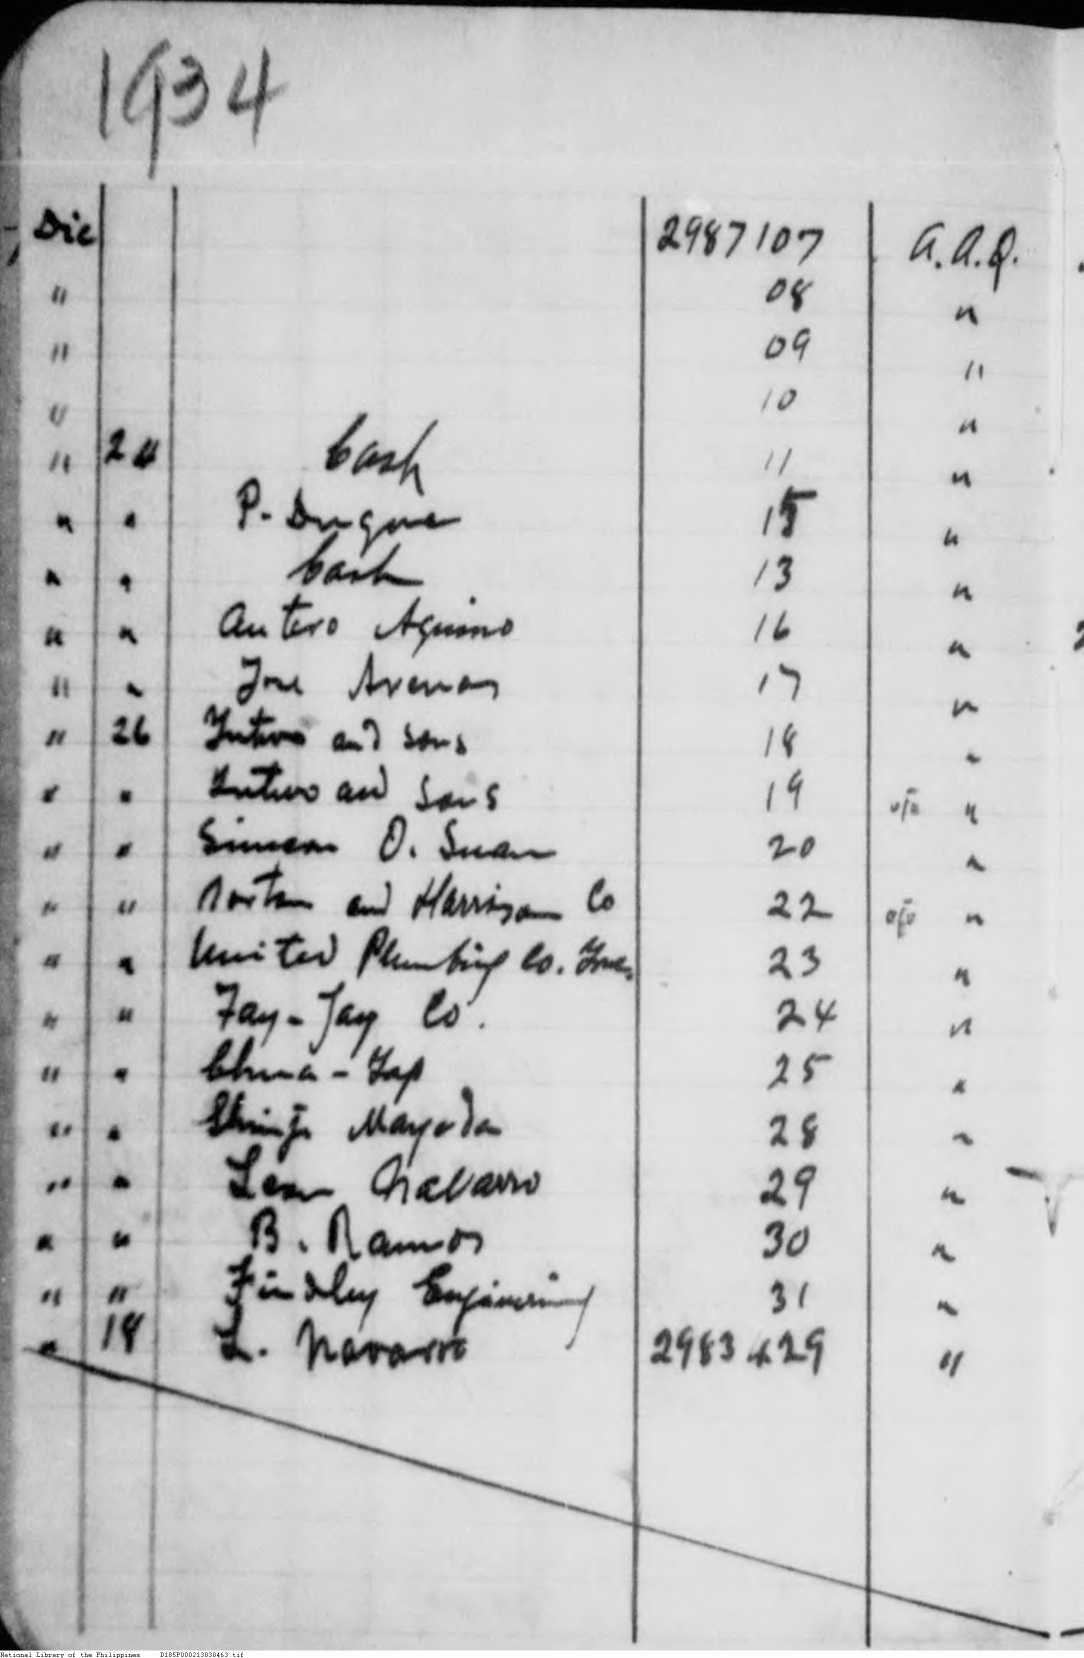 1934
Dic 2987107 A.A.Q.
" 08 "
" 09 "
" 10 "
" 24 Cash 11 "
" " P. Duque 15 "
" " Cash 13 "
" " Antero Aquino 16 "
" " Jose Arenas 17 "
" 26 Yutivo and Sons 18 "
" " Yutivo and Sons 19 "
" " Simeon O. Suan 20 "
" " Norton and Harrison Co 22 "
" " United Plumbing Co. Inc. 23 "
" " Fay-Jay Co. 24 "
" " Chua-Yap 25 "
" " 28 "
" " Leon Navarro 29 "
" " B. Ramos 30 "
" " Findley Engineering 31 "
" 18 L. Navarro 2983429 "
National Library of the Philippines D185P000213838463.tif